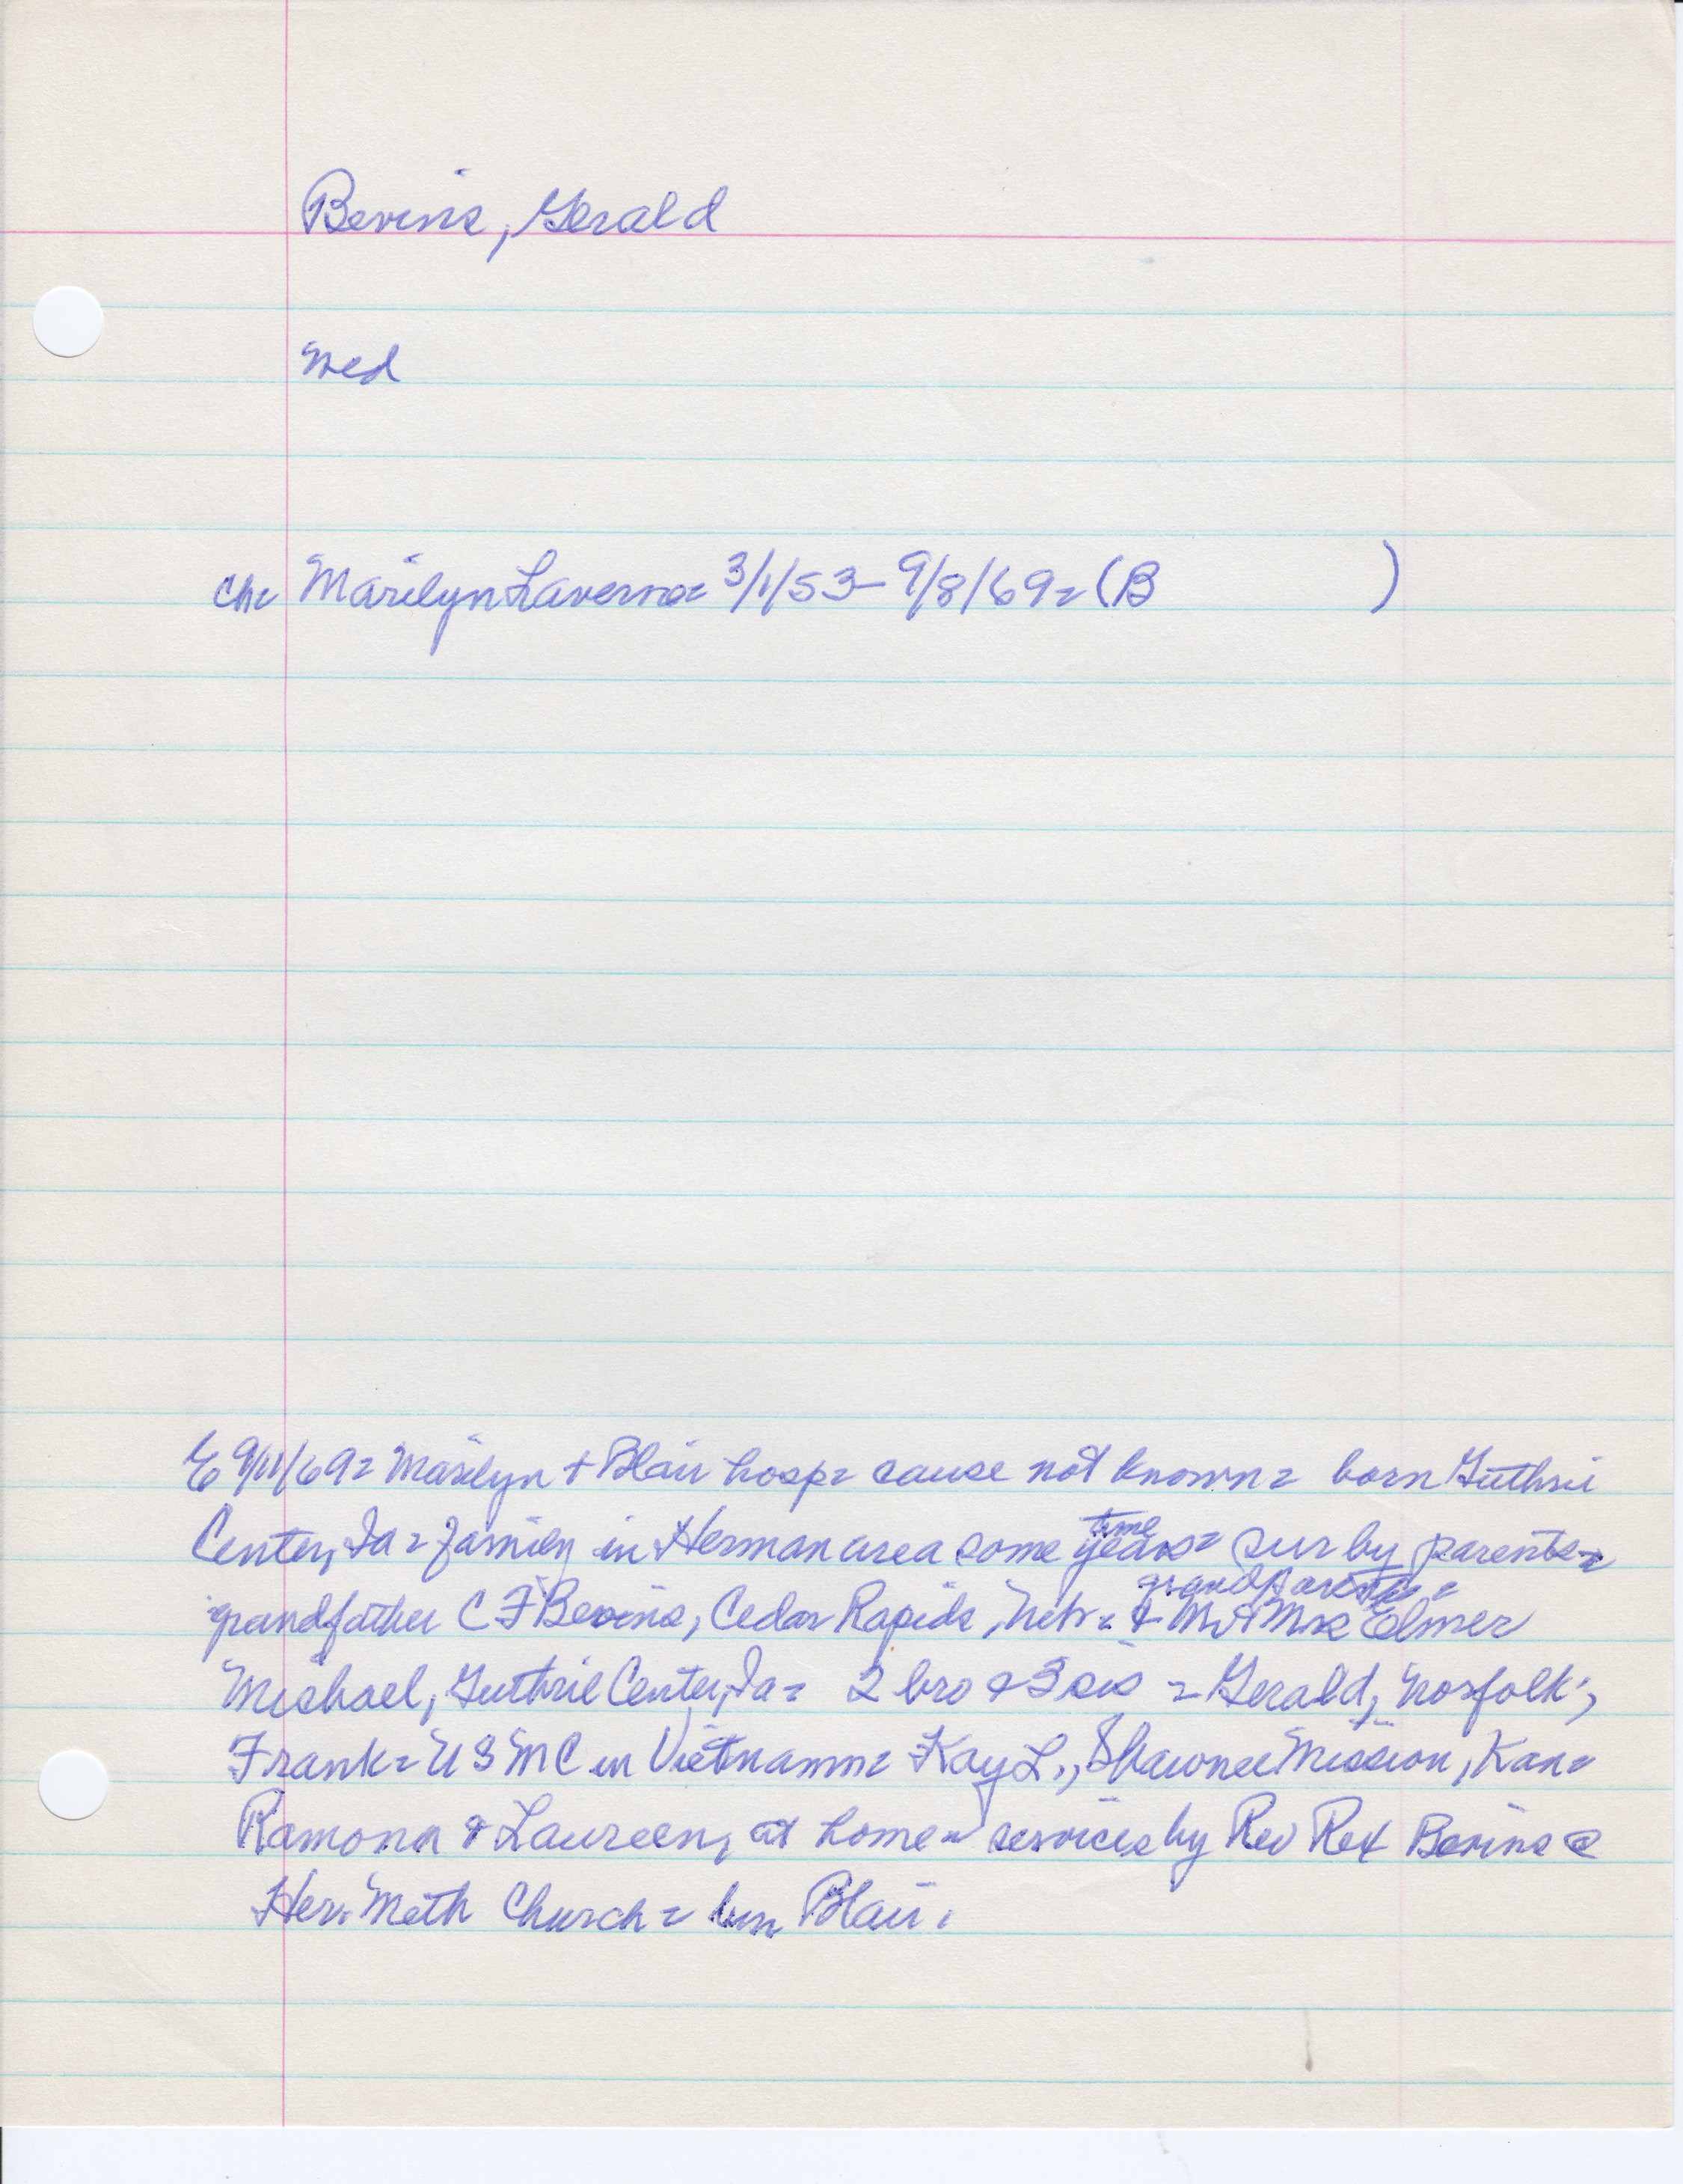 Bevins, Gerald
Med
Ch= Marilyn Laverna= 3/1/53 - 9/8/69= (B )
E 9/11/69= Marilyn + Blair hosp= cause not known= born Guthrie
Center, Ia= family in Herman area some years= sur by parents=
time
grandfather C F Bevins, Cedar Rapids, Neb= & Mr & Mrs Elmer
grandparents=
Michael, Guthrie Center, Ia= 2 bro & 3 sis = Gerald, Norfolk,
Frank= USMC in Vietnam= Kay L., Shawnee Mission, Kan=
Ramona & Laureen, at home= services by Rev Rex Bevins @
Her. Meth Church= bur Blair.